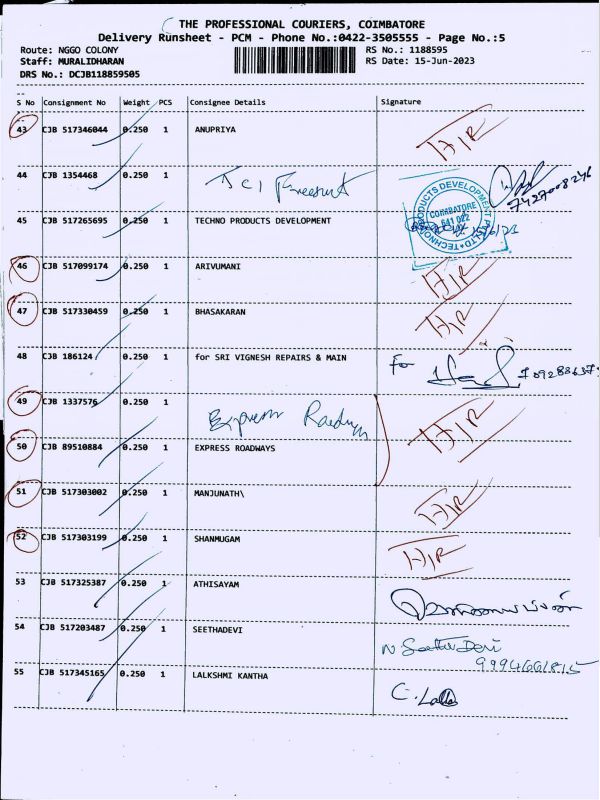 THE PROFESSIONAL COURIERS, COIMBATORE
Delivery Runsheet - PCM - Phone No.:0422-3505555 - Page No.:5
Route: NGGO COLONY
RS No.: 1188595
Staff: MURALIDHARAN
RS Date: 15-Jun-2023
DRS No.: DCJB118859505
S No Consignment No Weight PCS Consignee Details Signature
43 CJB 517346044 0.250 1 ANUPRIYA H/R
44 CJB 1354468 0.250 1
7427008246
45 CJB 517265695 0.250 1 TECHNO PRODUCTS DEVELOPMENT
TECHNO PRODUCTS DEVELOPMENT P LTD
COIMBATORE
641 022
46 CJB 517099174 0.250 1 ARIVUMANI H/R
47 CJB 517330459 0.250 1 BHASAKARAN H/R
48 CJB 186124 0.250 1 for SRI VIGNESH REPAIRS & MAIN For
49 CJB 1337576 0.250 1 Express Roadways
50 CJB 89510884 0.250 1 EXPRESS ROADWAYS H/R
51 CJB 517303002 0.250 1 MANJUNATH\ H/R
52 CJB 517303199 0.250 1 SHANMUGAM H/R
53 CJB 517325387 0.250 1 ATHISAYAM
54 CJB 517203487 0.250 1 SEETHADEVI N. Seetha Devi
9994661815
55 CJB 517345165 0.250 1 LALKSHMI KANTHA